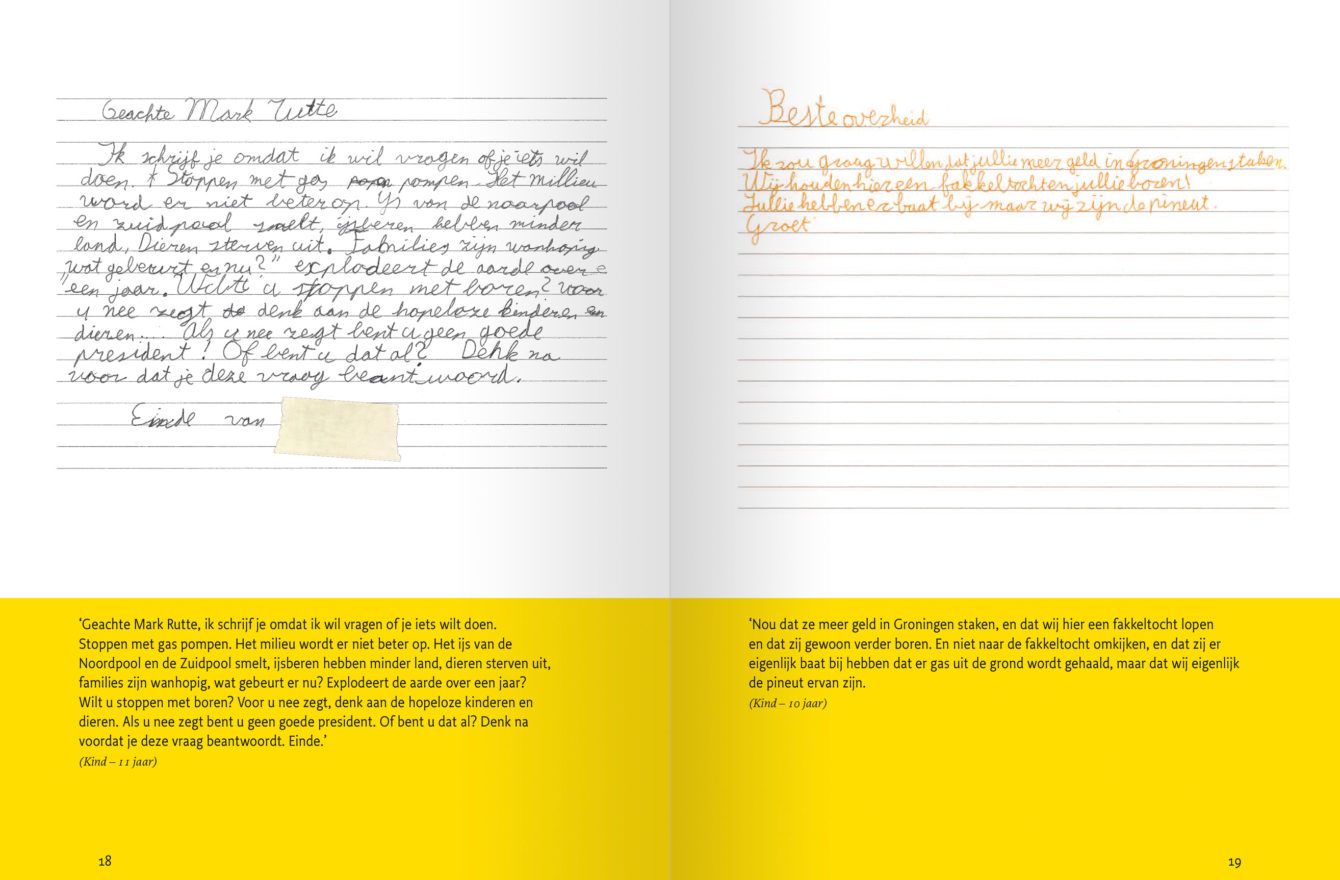 Geachte Mark Rutte
Ik schrijf je omdat ik wil vragen of je iets wil
doen. Stoppen met gas pompen Het millieu
word er niet beter op. Ys van de noarpool
en zuidpool smelt, ijsberen hebben minder
land, Dieren sterven uit. Families zijn wanhopig
wat gebeurt er nu?" explodeert de aarde over
"een jaar. Wilt u stoppen met boren? voor
u nee zegt denk aan de hopeloze kinderen en
dieren.... Als u nee zegt bent u geen goede
president! Of bent u dat al? Denk na
voor dat je deze vraag beantwoord.
Einde van
'Geachte Mark Rutte, ik schrijf je omdat ik wil vragen of je iets wilt doen.
Stoppen met gas pompen. Het milieu wordt er niet beter op. Het ijs van de
Noordpool en de Zuidpool smelt, ijsberen hebben minder land, dieren sterven uit,
families zijn wanhopig, wat gebeurt er nu? Explodeert de aarde over een jaar?
Wilt u stoppen met boren? Voor u nee zegt, denk aan de hopeloze kinderen en
dieren. Als u nee zegt bent u geen goede president. Of bent u dat al? Denk na
voordat je deze vraag beantwoordt. Einde.'
(Kind – 11 jaar)
18
Beste overheid
Ik zou graag willen dat jullie meer geld in Groningen staken.
Wij houden hier een fakkeltocht en jullie boren!
Jullie hebben er baat bij maar wij zijn de pineut.
Groet
'Nou dat ze meer geld in Groningen staken, en dat wij hier een fakkeltocht lopen
en dat zij gewoon verder boren. En niet naar de fakkeltocht omkijken, en dat zij er
eigenlijk baat bij hebben dat er gas uit de grond wordt gehaald, maar dat wij eigenlijk
de pineut ervan zijn.
(Kind – 10 jaar)
19